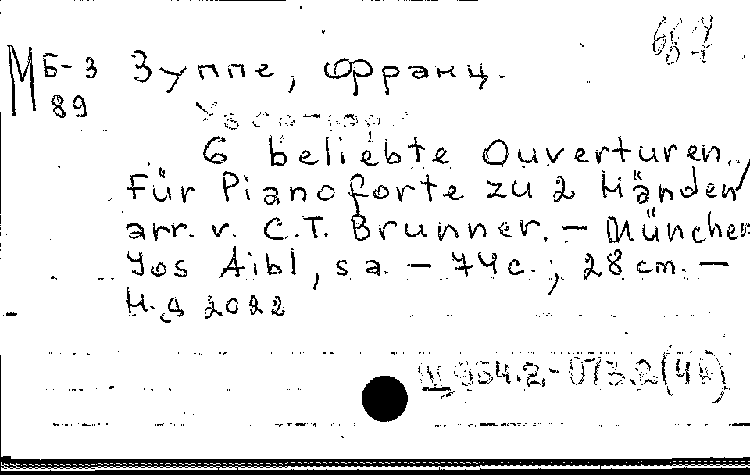 657
М Б-3 Зуппе, Франц.
89
6 beliebte Ouverturen.
Für Pianoforte zu 2 Händen
arr. v. C.T. Brunner. – München
Jos Aibl, s a. – 74 c.; 28 cm. –
Н.д 2022
954.2.-073.2(4А)